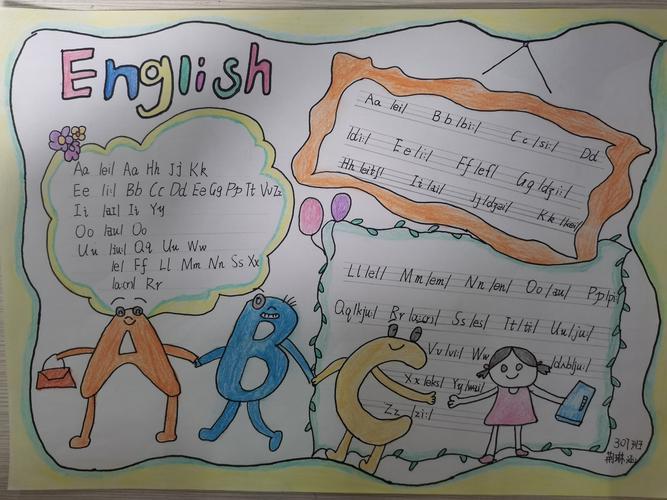 English
Aa /ei/ Aa Hh Jj Kk
Ee /i:/ Bb Cc Dd Ee Gg Pp Tt Vv Zz
Ii /aI/ Ii Yy
Oo /əu/ Oo
Uu /ju:/ Qq Uu Ww
/e/ Ff Ll Mm Nn Ss Xx
Rr
Aa /ei/ Bb /bi:/ Cc /si:/ Dd
/di:/ Ee /i:/ Ff /ef/ Gg /dʒi:/
Hh /eitʃ/ Ii /ai/ Jj /dʒei/ Kk /kei/
Ll /el/ Mm /em/ Nn /en/ Oo /əu/ Pp /pi:/
Qq /kju:/ Rr Ss /es/ Tt /ti:/ Uu /ju:/
Vv /vi:/ Ww /dʌblju:/
Xx /eks/ Yy /wai/
Zz /zi:/
A B C
301班